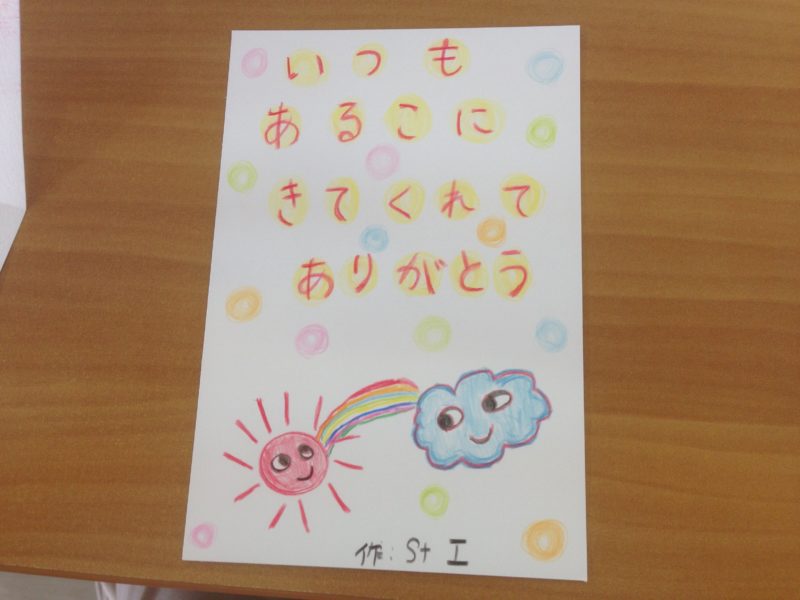 いつも
あるこに
きてくれて
ありがとう
作: St 工